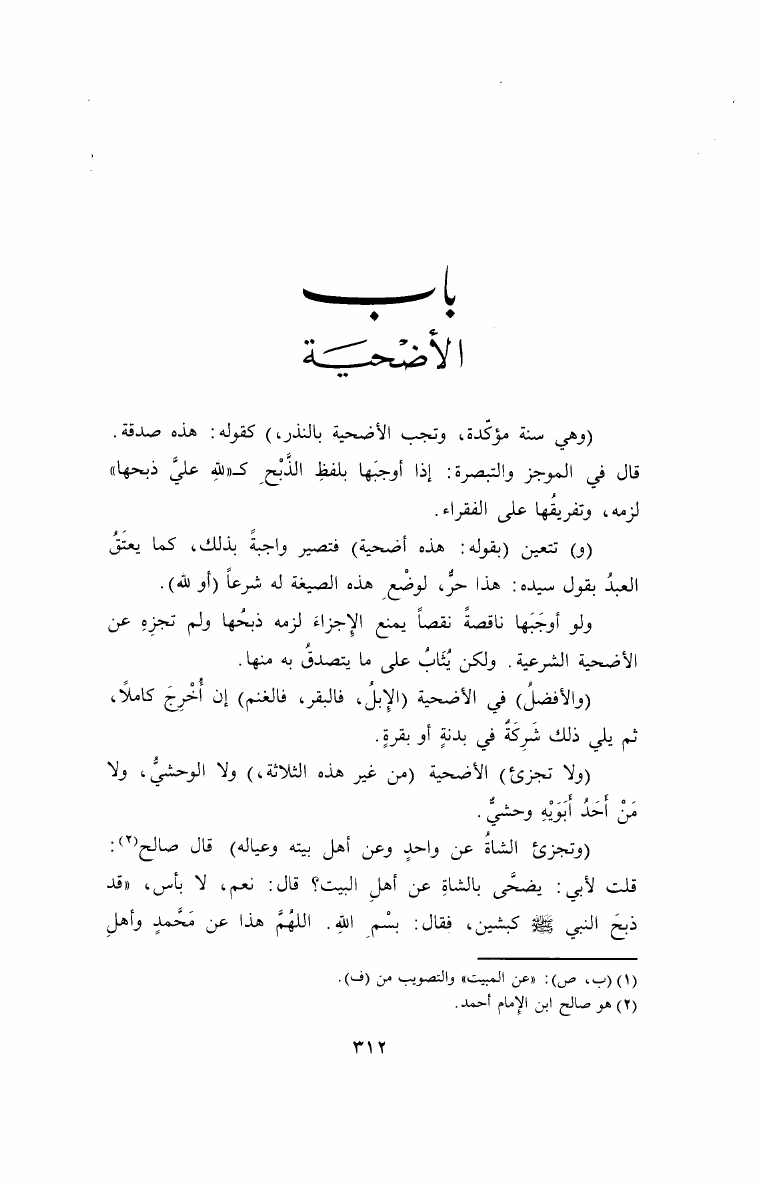 باب
الأضْحيَة
(وهي سنة مؤكّدة، وتجب الأضحية بالنذر،) كقوله: هذه صدقة.
قال في الموجز والتبصرة: إذا أوجبَها بلفظِ الذَّبْحِ كـ«للهِ عليَّ ذبحها»
لزمه، وتفريقُها على الفقراء.
(و) تتعين (بقوله: هذه أضحية) فتصير واجبةً بذلك، كما يعتَقُ
العبدُ بقول سيده: هذا حرٌّ، لوضْعِ هذه الصيغة له شرعاً (أو لله).
ولو أوجَبَها ناقصةً نقصاً يمنع الإجزاءَ لزمه ذبحُها ولم تجزِهِ عن
الأضحية الشرعية. ولكن يُثَابُ على ما يتصدقُ به منها.
(والأفضلُ) في الأضحية (الإبلُ، فالبقر، فالغنم) إن أُخْرِجَ كاملاً،
ثم يلي ذلك شَرِكَةٌ في بدنةٍ أو بقرةٍ.
(ولا تجزئ) الأضحية (من غير هذه الثلاثة،) ولا الوحشيُّ، ولا
مَنْ أَحَدُ أَبَوَيْهِ وحشيٌّ.
(وتجزئ الشاةُ عن واحدٍ وعن أهل بيته وعياله) قال صالح(٢):
قلت لأبي: يضحَّى بالشاةِ عن أهلِ البيت؟ قال: نعم، لا بأس، «قد
ذبحَ النبي ﷺ كبشين، فقال: بسْمِ اللهِ. اللهُمَّ هذا عن مَحَّمدٍ وأهلِ
(١) (ب، ص): «عن المبيت» والتصويب من (ف).
(٢) هو صالح ابن الإمام أحمد.
٣١٢